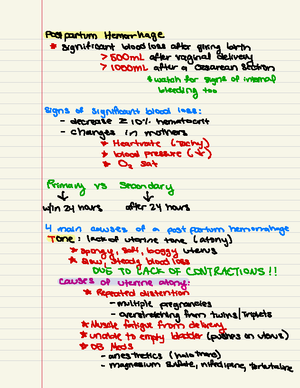 Postpartum Hemorrhage
* significant blood loss after giving birth
> 500mL after vaginal delivery
> 1000mL after a cesarean section
* watch for signs of internal
bleeding too
Signs of significant blood loss:
- decrease ≥ 10% hematocrit
- changes in mothers
* Heartrate (tachy)
* blood pressure (↓)
* O₂ sat
Primary vs Secondary
w/in 24 hours after 24 hours
4 main causes of a postpartum hemorrhage
Tone: lack of uterine tone (atony)
* spongy, soft, boggy uterus
* slow, steady blood loss
DUE TO LACK OF CONTRACTIONS!!
causes of uterine atony:
* Repeated distention
- multiple pregnancies
- overstretching from twins/triplets
* Muscle fatigue from delivery
* unable to empty bladder (pushes on uterus)
* OB Meds
- anesthetics
- magnesium sulfate, nifedipine, terbutaline